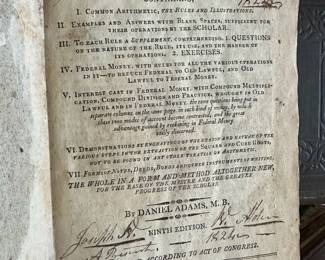 CONTAINING,
I. COMMON ARITHMETIC, THE RULES AND ILLUSTRATIONS.
II. EXAMPLES AND ANSWERS WITH BLANK SPACES, SUFFICIENT FOR
THEIR OPERATIONS BY THE SCHOLAR.
III. TO EACH RULE A SUPPLEMENT, COMPREHENDING, 1. QUESTIONS
ON THE NATURE OF THE RULE, ITS USE, AND THE MANNER OF
ITS OPERATIONS. 2. EXERCISES.
IV. FEDERAL MONEY, WITH RULES FOR ALL THE VARIOUS OPERATIONS
IN IT—TO REDUCE FEDERAL TO OLD LAWFUL, AND OLD
LAWFUL TO FEDERAL MONEY.
V. INTEREST CAST IN FEDERAL MONEY, WITH COMPOUND MULTIPLI-
CATION, COMPOUND DIVISION AND PRACTICE, WROUGHT IN OLD
LAWFUL AND IN FEDERAL MONEY, the same questions being put in
separate columns on the same page, in each kind of money, by which
these two modes of account become contrasted, and the great
advantage gained by reckoning in Federal Money
easily discerned.
VI. DEMONSTRATIONS BY ENGRAVING OF THE REASON AND NATURE OF THE
VARIOUS STEPS IN THE EXTRACTION OF THE SQUARE AND CUBE ROOTS,
NOT TO BE FOUND IN ANY OTHER TREATISE ON ARITHMETIC.
VII. FORMS OF NOTES, DEEDS, BONDS AND OTHER INSTRUMENTS OF WRITING.
THE WHOLE IN A FORM AND METHOD ALTOGETHER NEW,
FOR THE EASE OF THE MASTER AND THE GREATER
PROGRESS OF THE SCHOLAR.
BY DANIEL ADAMS, M. B.
NINTH EDITION.
Joseph
A Present
Alden
1824
ACCORDING TO ACT OF CONGRESS.